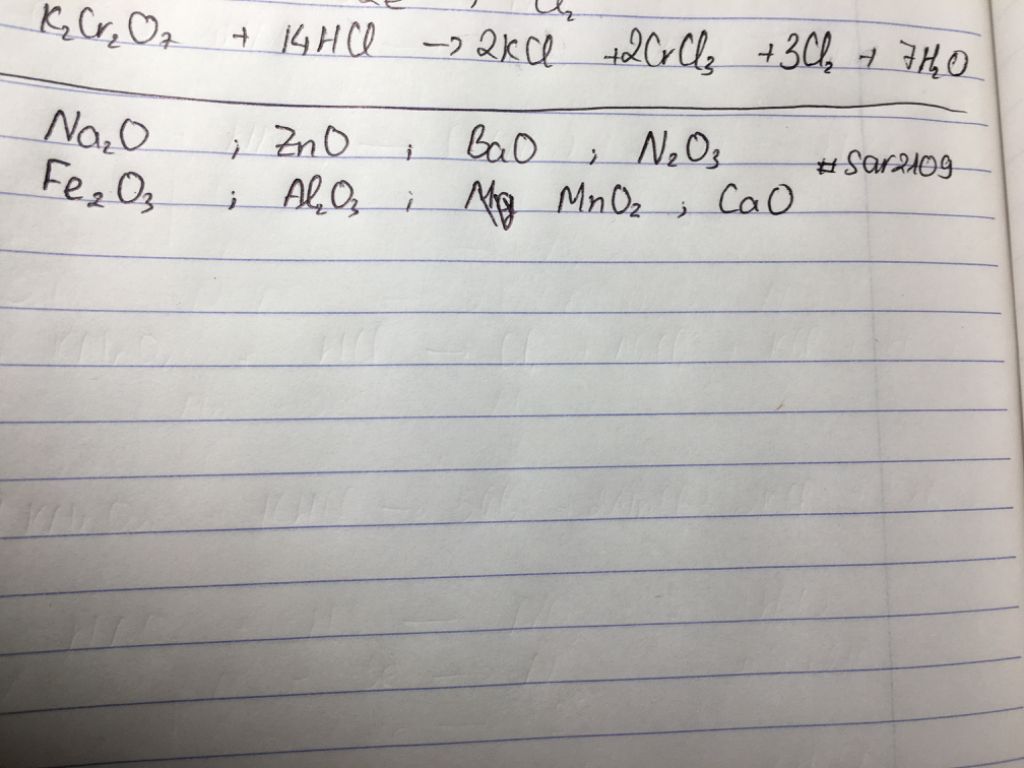 Cl₂
K₂Cr₂O₇ + 14HCl → 2KCl +2CrCl₃ +3Cl₂ + 7H₂O
Na₂O ; ZnO ; BaO ; N₂O₃ #Sar2109
Fe₂O₃ ; Al₂O₃ ; MnO₂ ; CaO